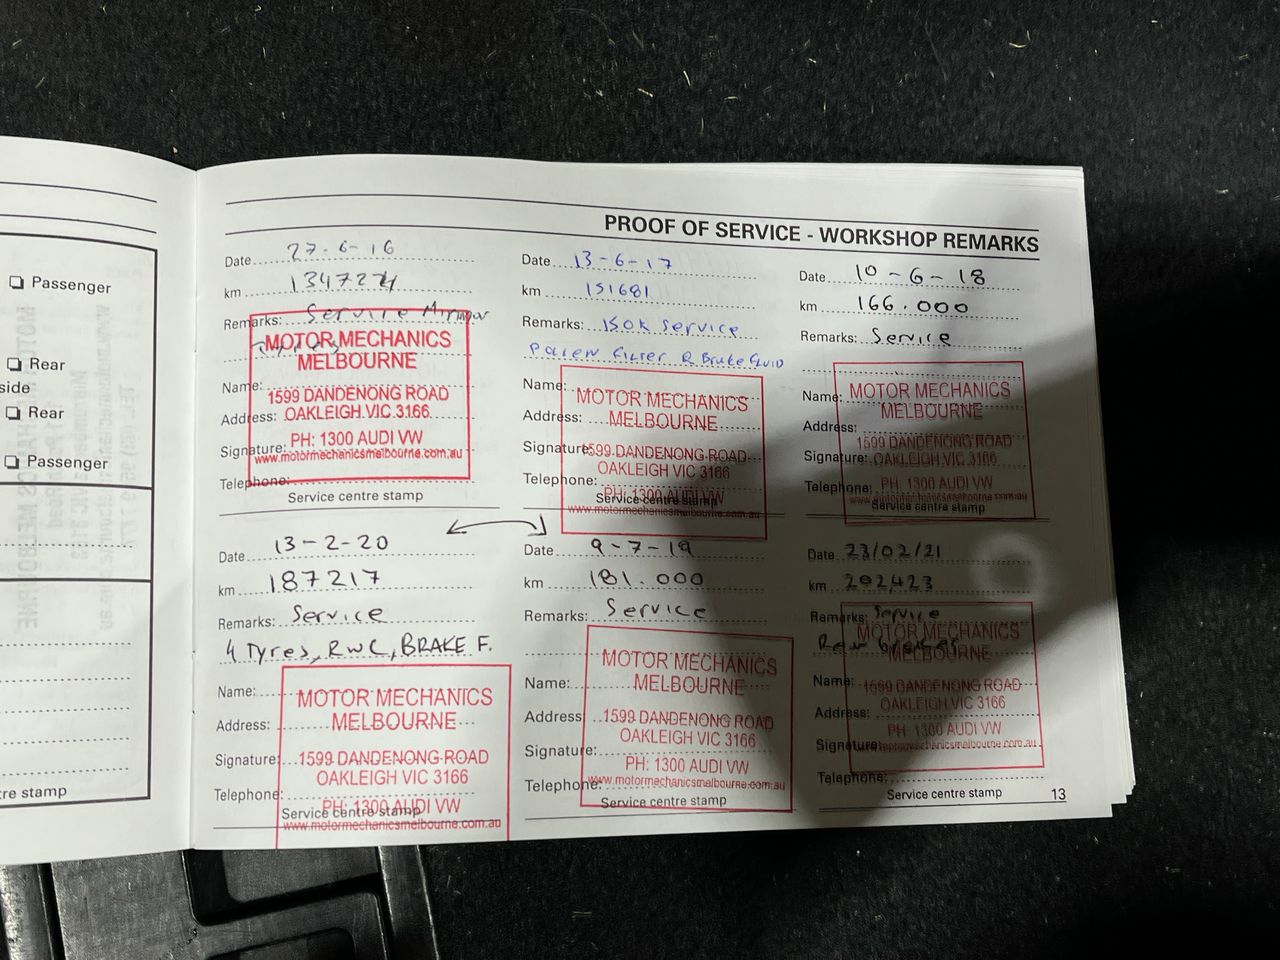 Passenger
Rear
side
Rear
Passenger
tre stamp
PROOF OF SERVICE - WORKSHOP REMARKS
Date 27-6-16
km
Remarks: Service Mirror
MOTOR MECHANICS
MELBOURNE
Name:
1599 DANDENONG ROAD
Address: OAKLEIGH VIC 3166
Signature: PH: 1300 AUDI VW
www.motormechanicsmelbourne.com.au
Telephone:
Service centre stamp
Date 13-6-17
km 151681
Remarks: 150K Service
Pollen Filter & Brake Fluid
Name: MOTOR MECHANICS
Address: MELBOURNE
Signature: 1599 DANDENONG ROAD
OAKLEIGH VIC 3166
Telephone: PH: 1300 AUDI VW
Service centre stamp
www.motormechanicsmelbourne.com.au
Date 10-6-18
km 166.000
Remarks: Service
Name: MOTOR MECHANICS
MELBOURNE
Address: 1599 DANDENONG ROAD
Signature: OAKLEIGH VIC 3166
Telephone: PH: 1300 AUDI VW
www.motormechanicsmelbourne.com.au
Service centre stamp
Date 13-2-20
km 187217
Remarks: Service
4 Tyres, RWC, BRAKE F.
Name: MOTOR MECHANICS
Address: MELBOURNE
Signature: 1599 DANDENONG ROAD
OAKLEIGH VIC 3166
Telephone: PH: 1300 AUDI VW
Service centre stamp
www.motormechanicsmelbourne.com.au
Date 9-7-19
km 181.000
Remarks: Service
MOTOR MECHANICS
Name: MELBOURNE
Address 1599 DANDENONG ROAD
OAKLEIGH VIC 3166
Signature: PH: 1300 AUDI VW
Telephone: www.motormechanicsmelbourne.com.au
Service centre stamp
Date 23/02/21
km 202,423
Remarks: Service
Rear
MOTOR MECHANICS
MELBOURNE
Name: 1599 DANDENONG ROAD
Address: OAKLEIGH VIC 3166
PH: 1300 AUDI VW
Signature: www.motormechanicsmelbourne.com.au
Telephone:
Service centre stamp
13